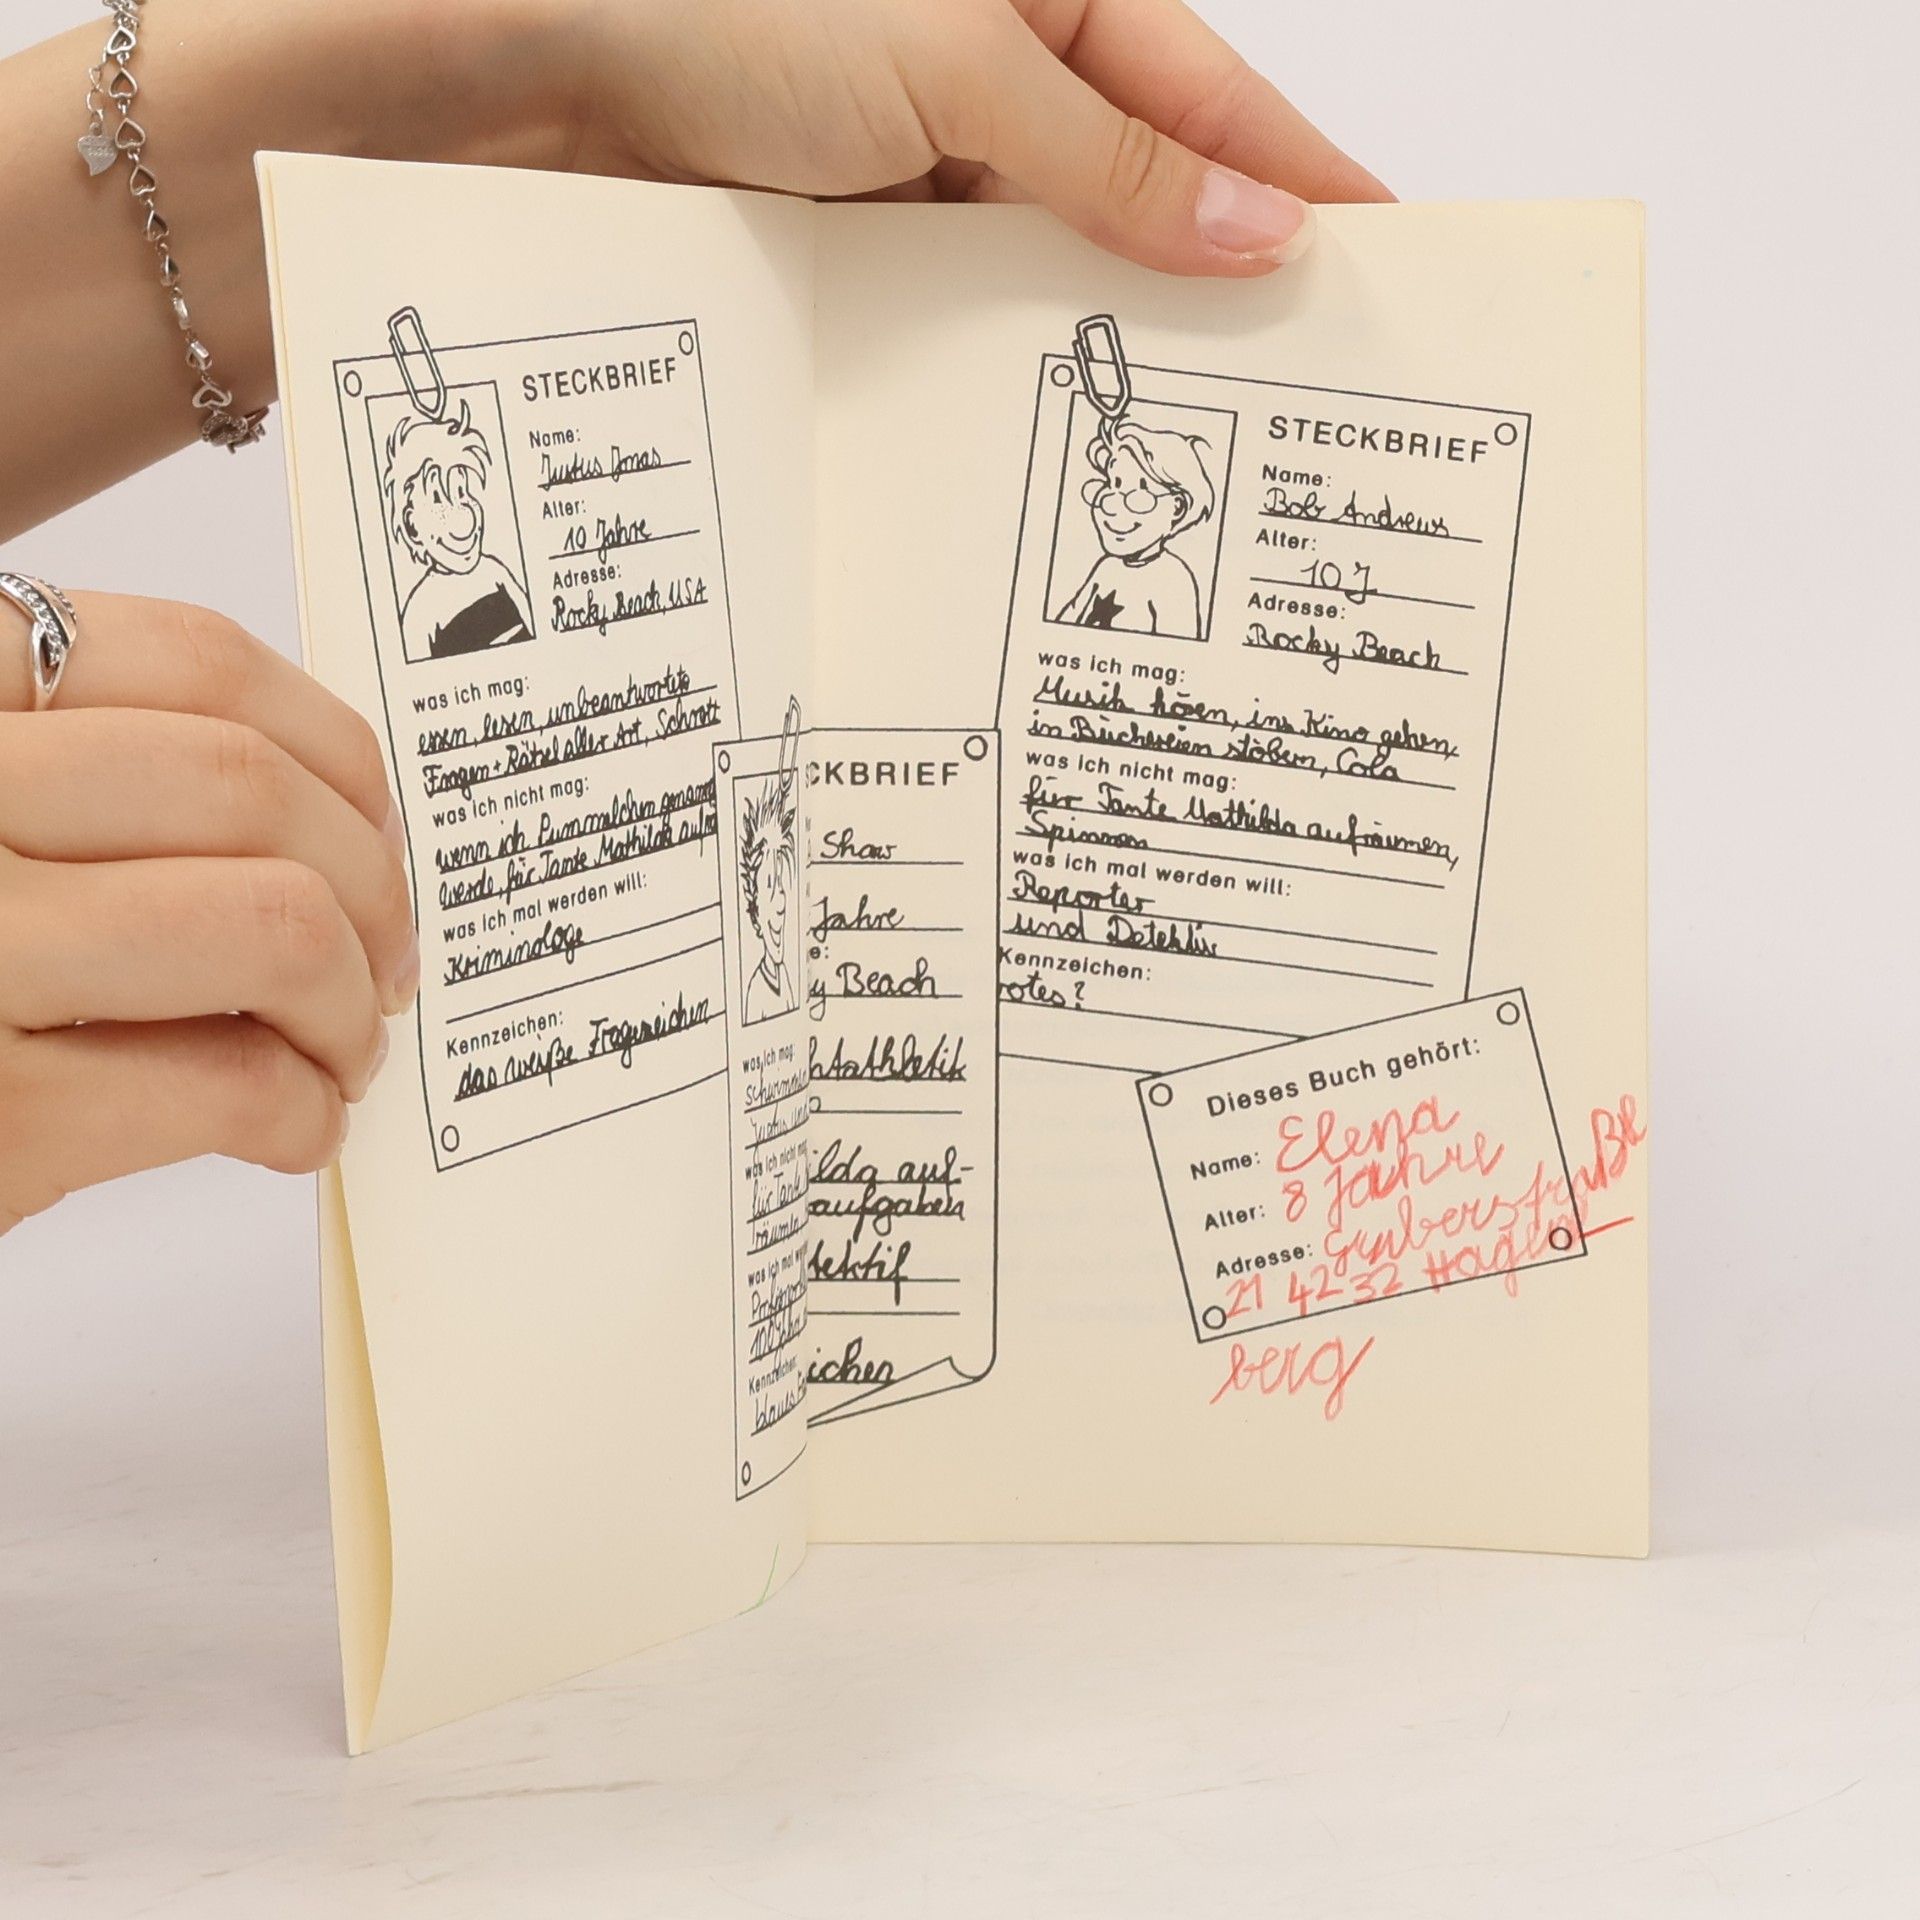 STECKBRIEF
Name:
Justus Jonas
Alter:
10 Jahre
Adresse:
Rocky Beach, USA
was ich mag:
essen, lesen, unbeantwortete
Fragen + Rätsel aller Art, Schrott
was ich nicht mag:
wenn ich Pummelchen genannt
werde, für Tante Mathilda aufrä
was ich mal werden will:
Kriminologe
Kennzeichen:
das weiße Fragezeichen
CKBRIEF
Shaw
Jahre
e:
y Beach
was ich mag:
schwimmen
htathletik
Justus und
was ich nicht mag
für Tante
ilda auf-
räumen,
aufgaben
was ich mal w
tektif
100 Jahre
Kennzeichen:
blaues
ichen
STECKBRIEF
Name:
Bob Andrews
Alter:
10 J
Adresse:
Rocky Beach
was ich mag:
Musik hören, ins Kino gehen,
in Büchereien stöbern, Cola
was ich nicht mag:
für Tante Mathilda aufräumen,
Spinnen
was ich mal werden will:
Reporter
und Detektiv
Kennzeichen:
rotes ?
Dieses Buch gehört:
Name: Elena
Alter: 8 Jahre
Adresse: Gruberstraße
21 42 32 Hagen
berg